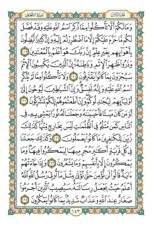 سورة الأنعام
الجزء الثامن
وَمَا لَكُمْ أَلَّا تَأْكُلُوا۟ مِمَّا ذُكِرَ ٱسْمُ ٱللَّهِ عَلَيْهِ وَقَدْ فَصَّلَ
لَكُم مَّا حَرَّمَ عَلَيْكُمْ إِلَّا مَا ٱضْطُرِرْتُمْ إِلَيْهِ وَإِنَّ كَثِيرًا لَّيُضِلُّونَ
بِأَهْوَآئِهِم بِغَيْرِ عِلْمٍ إِنَّ رَبَّكَ هُوَ أَعْلَمُ بِٱلْمُعْتَدِينَ
وَذَرُوا۟ ظَـٰهِرَ ٱلْإِثْمِ وَبَاطِنَهُۥٓ إِنَّ ٱلَّذِينَ يَكْسِبُونَ ٱلْإِثْمَ
سَيُجْزَوْنَ بِمَا كَانُوا۟ يَقْتَرِفُونَ وَلَا تَأْكُلُوا۟ مِمَّا لَمْ يُذْكَرِ
ٱسْمُ ٱللَّهِ عَلَيْهِ وَإِنَّهُۥ لَفِسْقٌ وَإِنَّ ٱلشَّيَـٰطِينَ لَيُوحُونَ
إِلَىٰٓ أَوْلِيَآئِهِمْ لِيُجَـٰدِلُوكُمْ وَإِنْ أَطَعْتُمُوهُمْ إِنَّكُمْ لَمُشْرِكُونَ
أَوَمَن كَانَ مَيْتًا فَأَحْيَيْنَـٰهُ وَجَعَلْنَا لَهُۥ نُورًا يَمْشِى بِهِۦ فِى
ٱلنَّاسِ كَمَن مَّثَلُهُۥ فِى ٱلظُّلُمَـٰتِ لَيْسَ بِخَارِجٍ مِّنْهَا كَذَٰلِكَ
زُيِّنَ لِلْكَـٰفِرِينَ مَا كَانُوا۟ يَعْمَلُونَ وَكَذَٰلِكَ جَعَلْنَا
فِى كُلِّ قَرْيَةٍ أَكَـٰبِرَ مُجْرِمِيهَا لِيَمْكُرُوا۟ فِيهَا وَمَا
يَمْكُرُونَ إِلَّا بِأَنفُسِهِمْ وَمَا يَشْعُرُونَ وَإِذَا جَآءَتْهُمْ
ءَايَةٌ قَالُوا۟ لَن نُّؤْمِنَ حَتَّىٰ نُؤْتَىٰ مِثْلَ مَآ أُوتِىَ رُسُلُ ٱللَّهِ ٱللَّهُ
أَعْلَمُ حَيْثُ يَجْعَلُ رِسَالَتَهُۥ سَيُصِيبُ ٱلَّذِينَ أَجْرَمُوا۟
صَغَارٌ عِندَ ٱللَّهِ وَعَذَابٌ شَدِيدٌۢ بِمَا كَانُوا۟ يَمْكُرُونَ
١٤٣